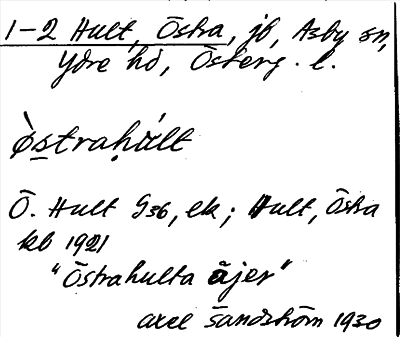 1-2 Hult, Östra, jb, Asby sn,
Ydre hd, Österg. l.
ò̀strahu̇́lt
Ö. Hult G36, ek; Hult, Östra
kb 1921
"Östrahulta åjer"
Axel Sandström 1930